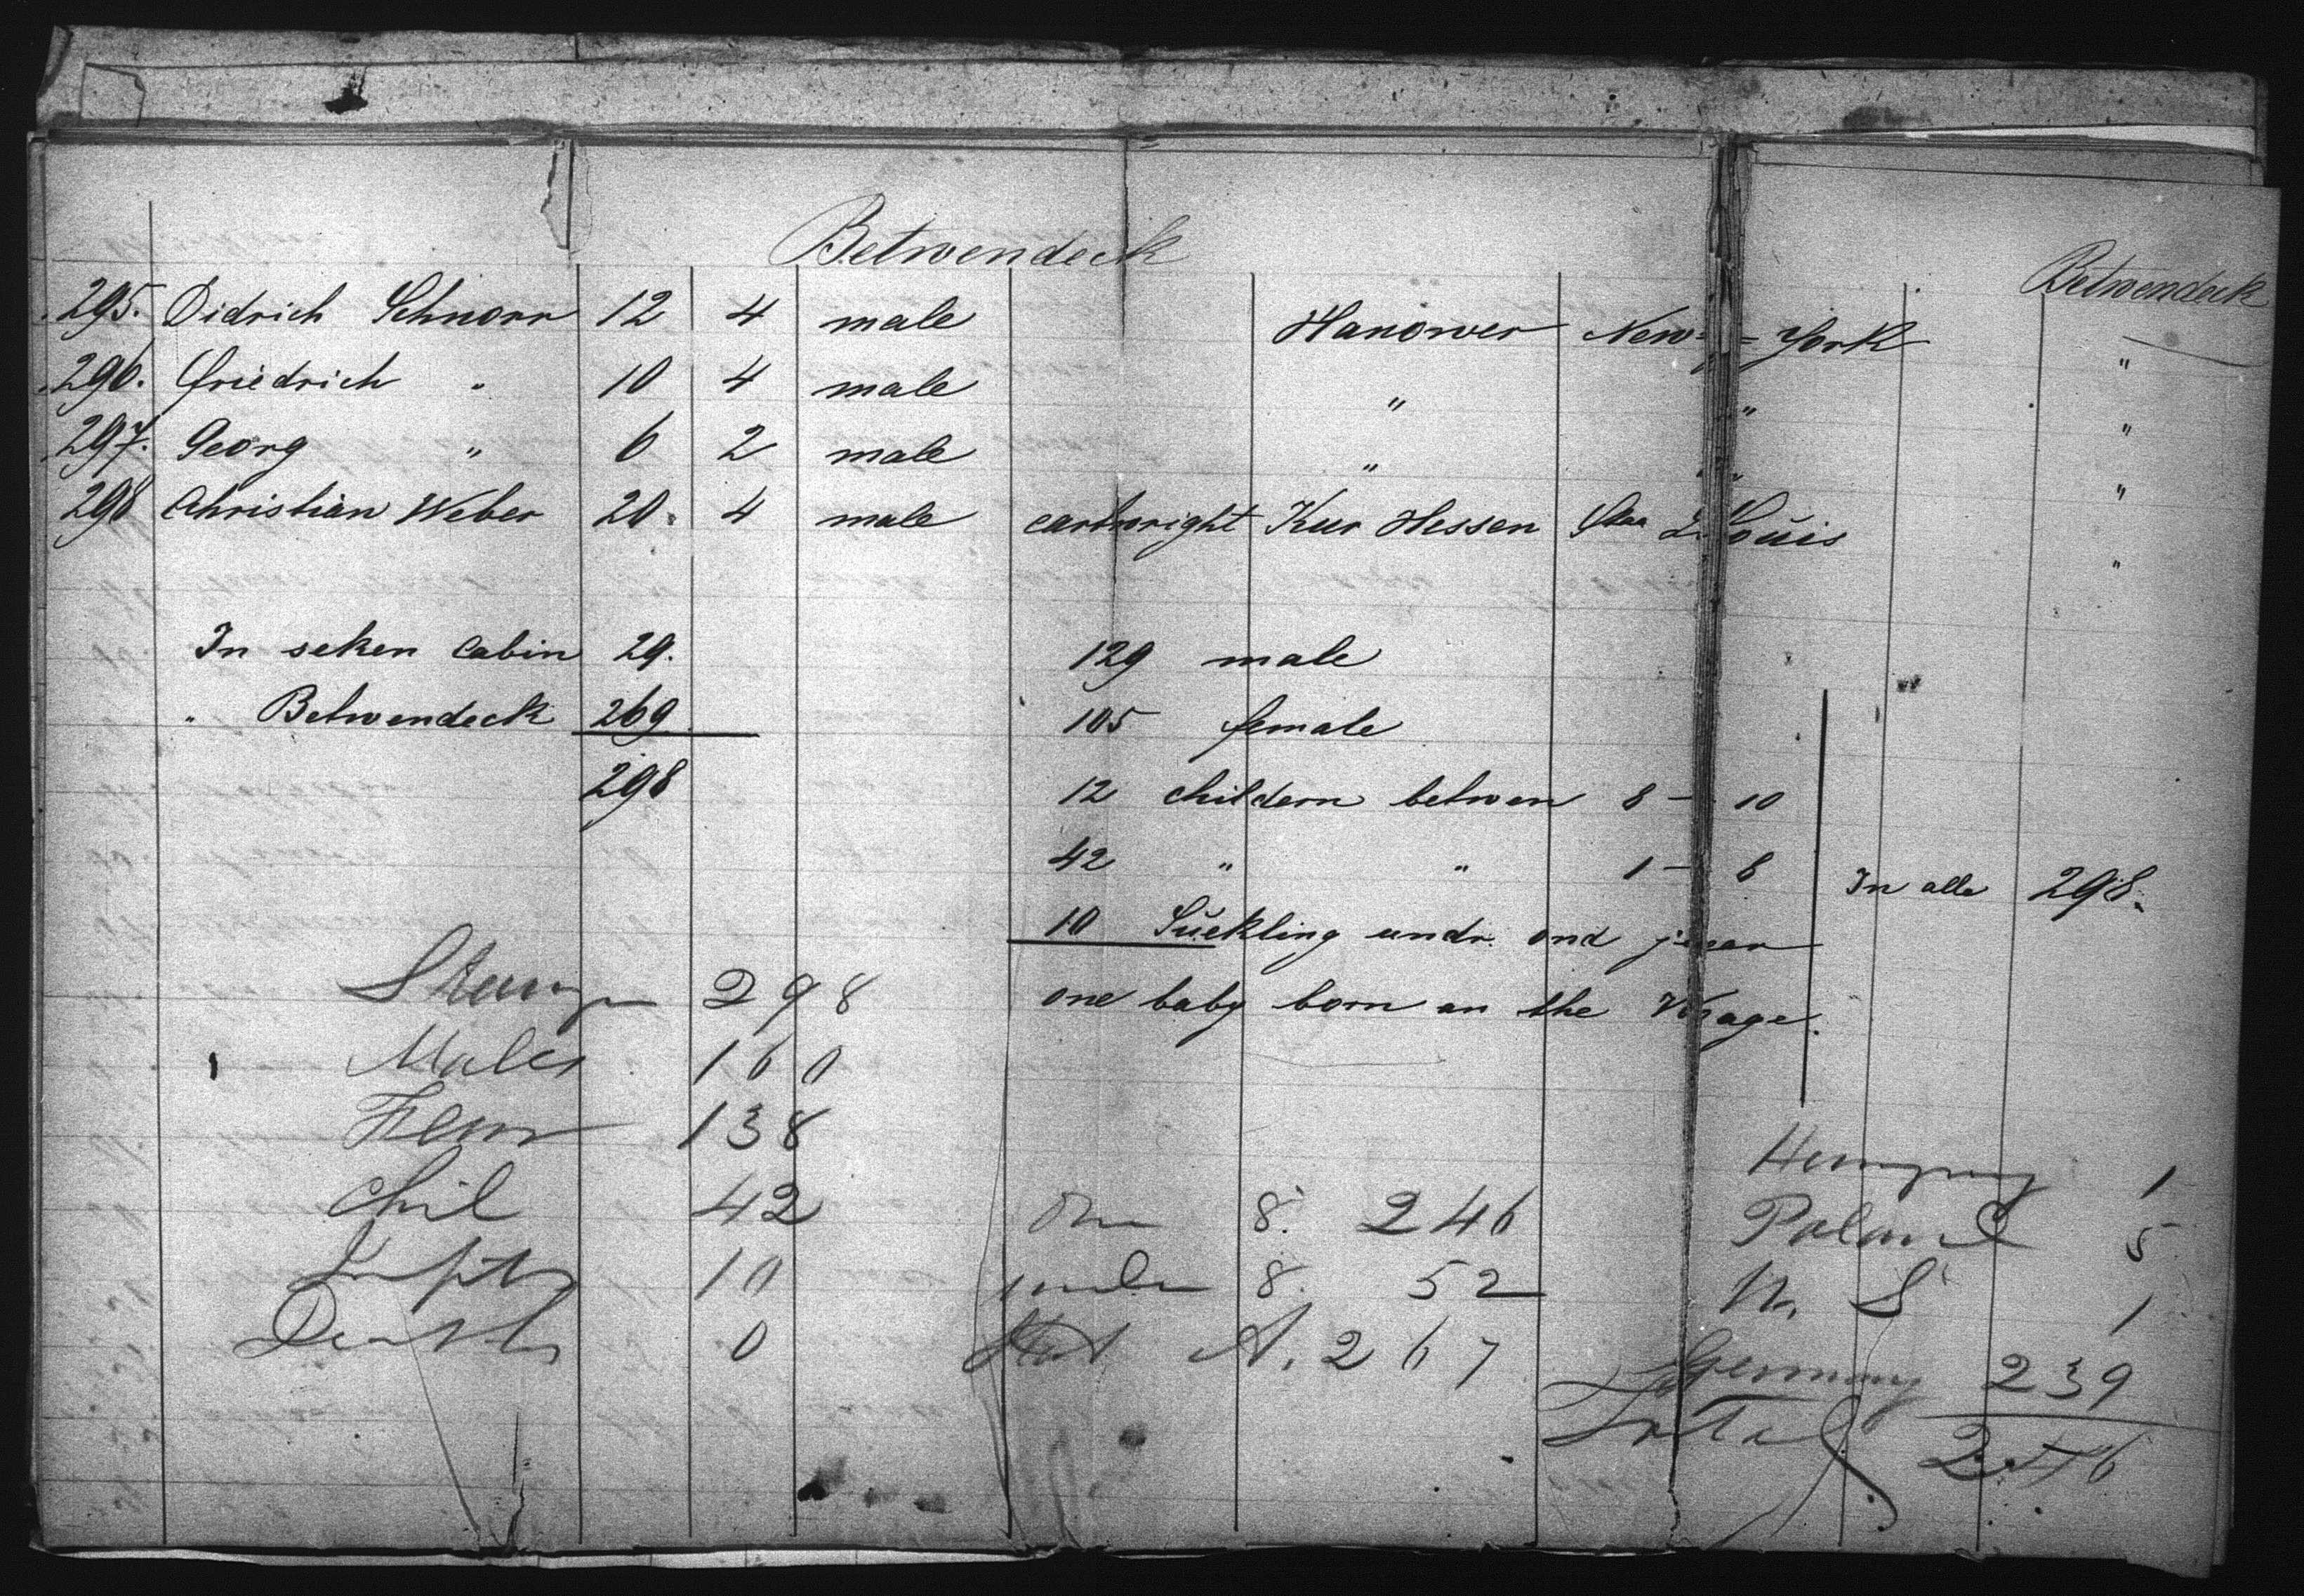 Betwendeck
Betwendeck
295. Didrich Schnorr 12 4 male Hanower New= =York "
296. Friedrich " 10 4 male " " "
297. Georg " 6 2 male " " "
298 Christian Weber 20. 4 male cartwright Kur Hessen Louis "
In seken Cabin 29. 129 male
" Betwendeck 269. 105 female
298 12 childern betwen 8 - 10
42 " " 1 - 8 In alle 298.
10 Suckling undr. ond
one baby born an the
298
Males 160
Fem 138
Chil 42 8. 246
10 8. 52
Deaths 0 A. 267
Hungary 1
Poland 5
1
Germany 239
Total 246